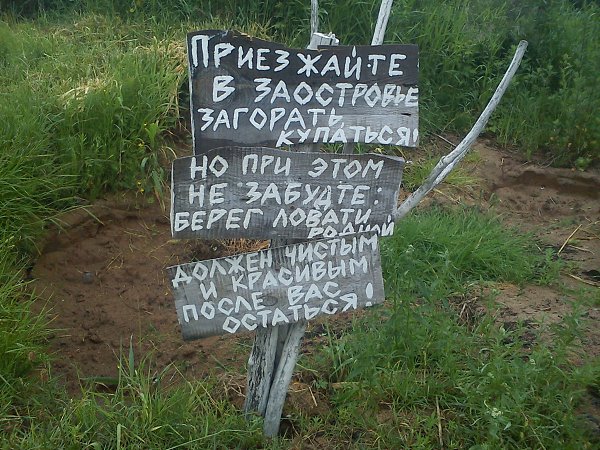 ПРИЕЗЖАЙТЕ
В ЗАОСТРОВЬЕ
ЗАГОРАТЬ
КУПАТЬСЯ!
НО ПРИ ЭТОМ
НЕ ЗАБУДТЕ:
БЕРЕГ ЛОВАТИ
РОДНОЙ
ДОЛЖЕН ЧИСТЫМ
И КРАСИВЫМ
ПОСЛЕ ВАС
ОСТАТЬСЯ!